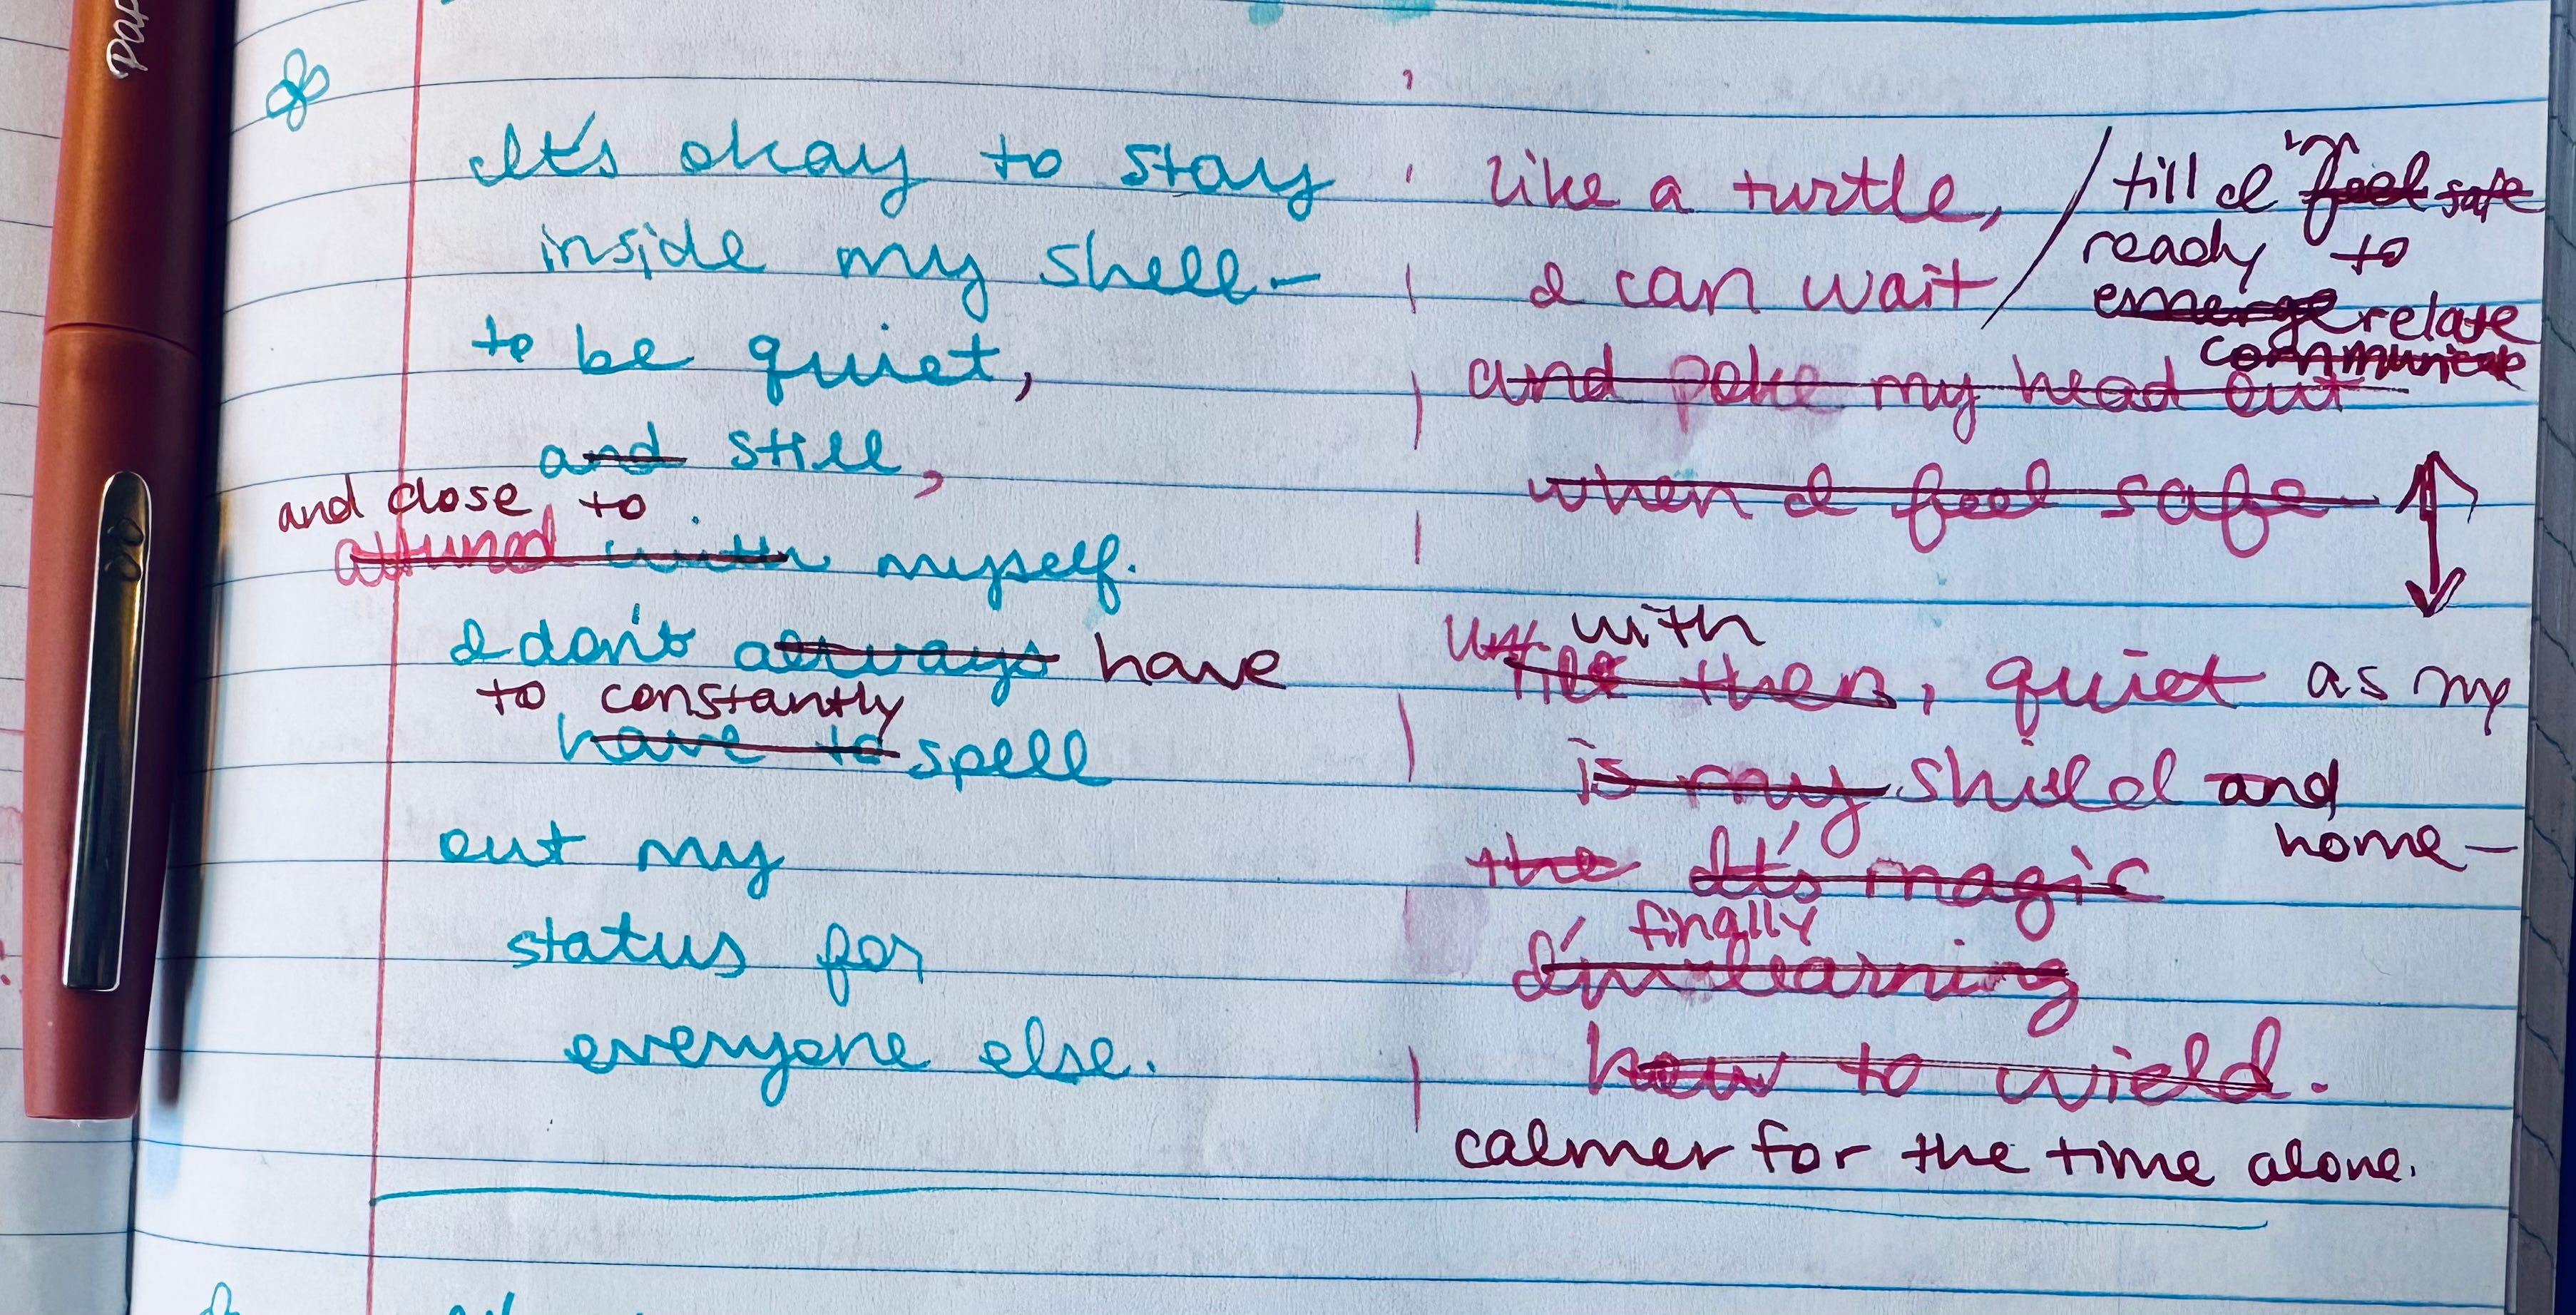 It's okay to stay
inside my shell—
to be quiet,
and still,
and close to
attuned with myself.
I don't always have
to constantly
have to spell
out my
status for
everyone else.
like a turtle, / till I'm feel safe
ready to
I can wait
emerge relate
communicate
and poke my head out
when I feel safe
with
till then, quiet as my
is my shield and
home—
the It's magic
finally
I'm learning
how to wield.
calmer for the time alone.